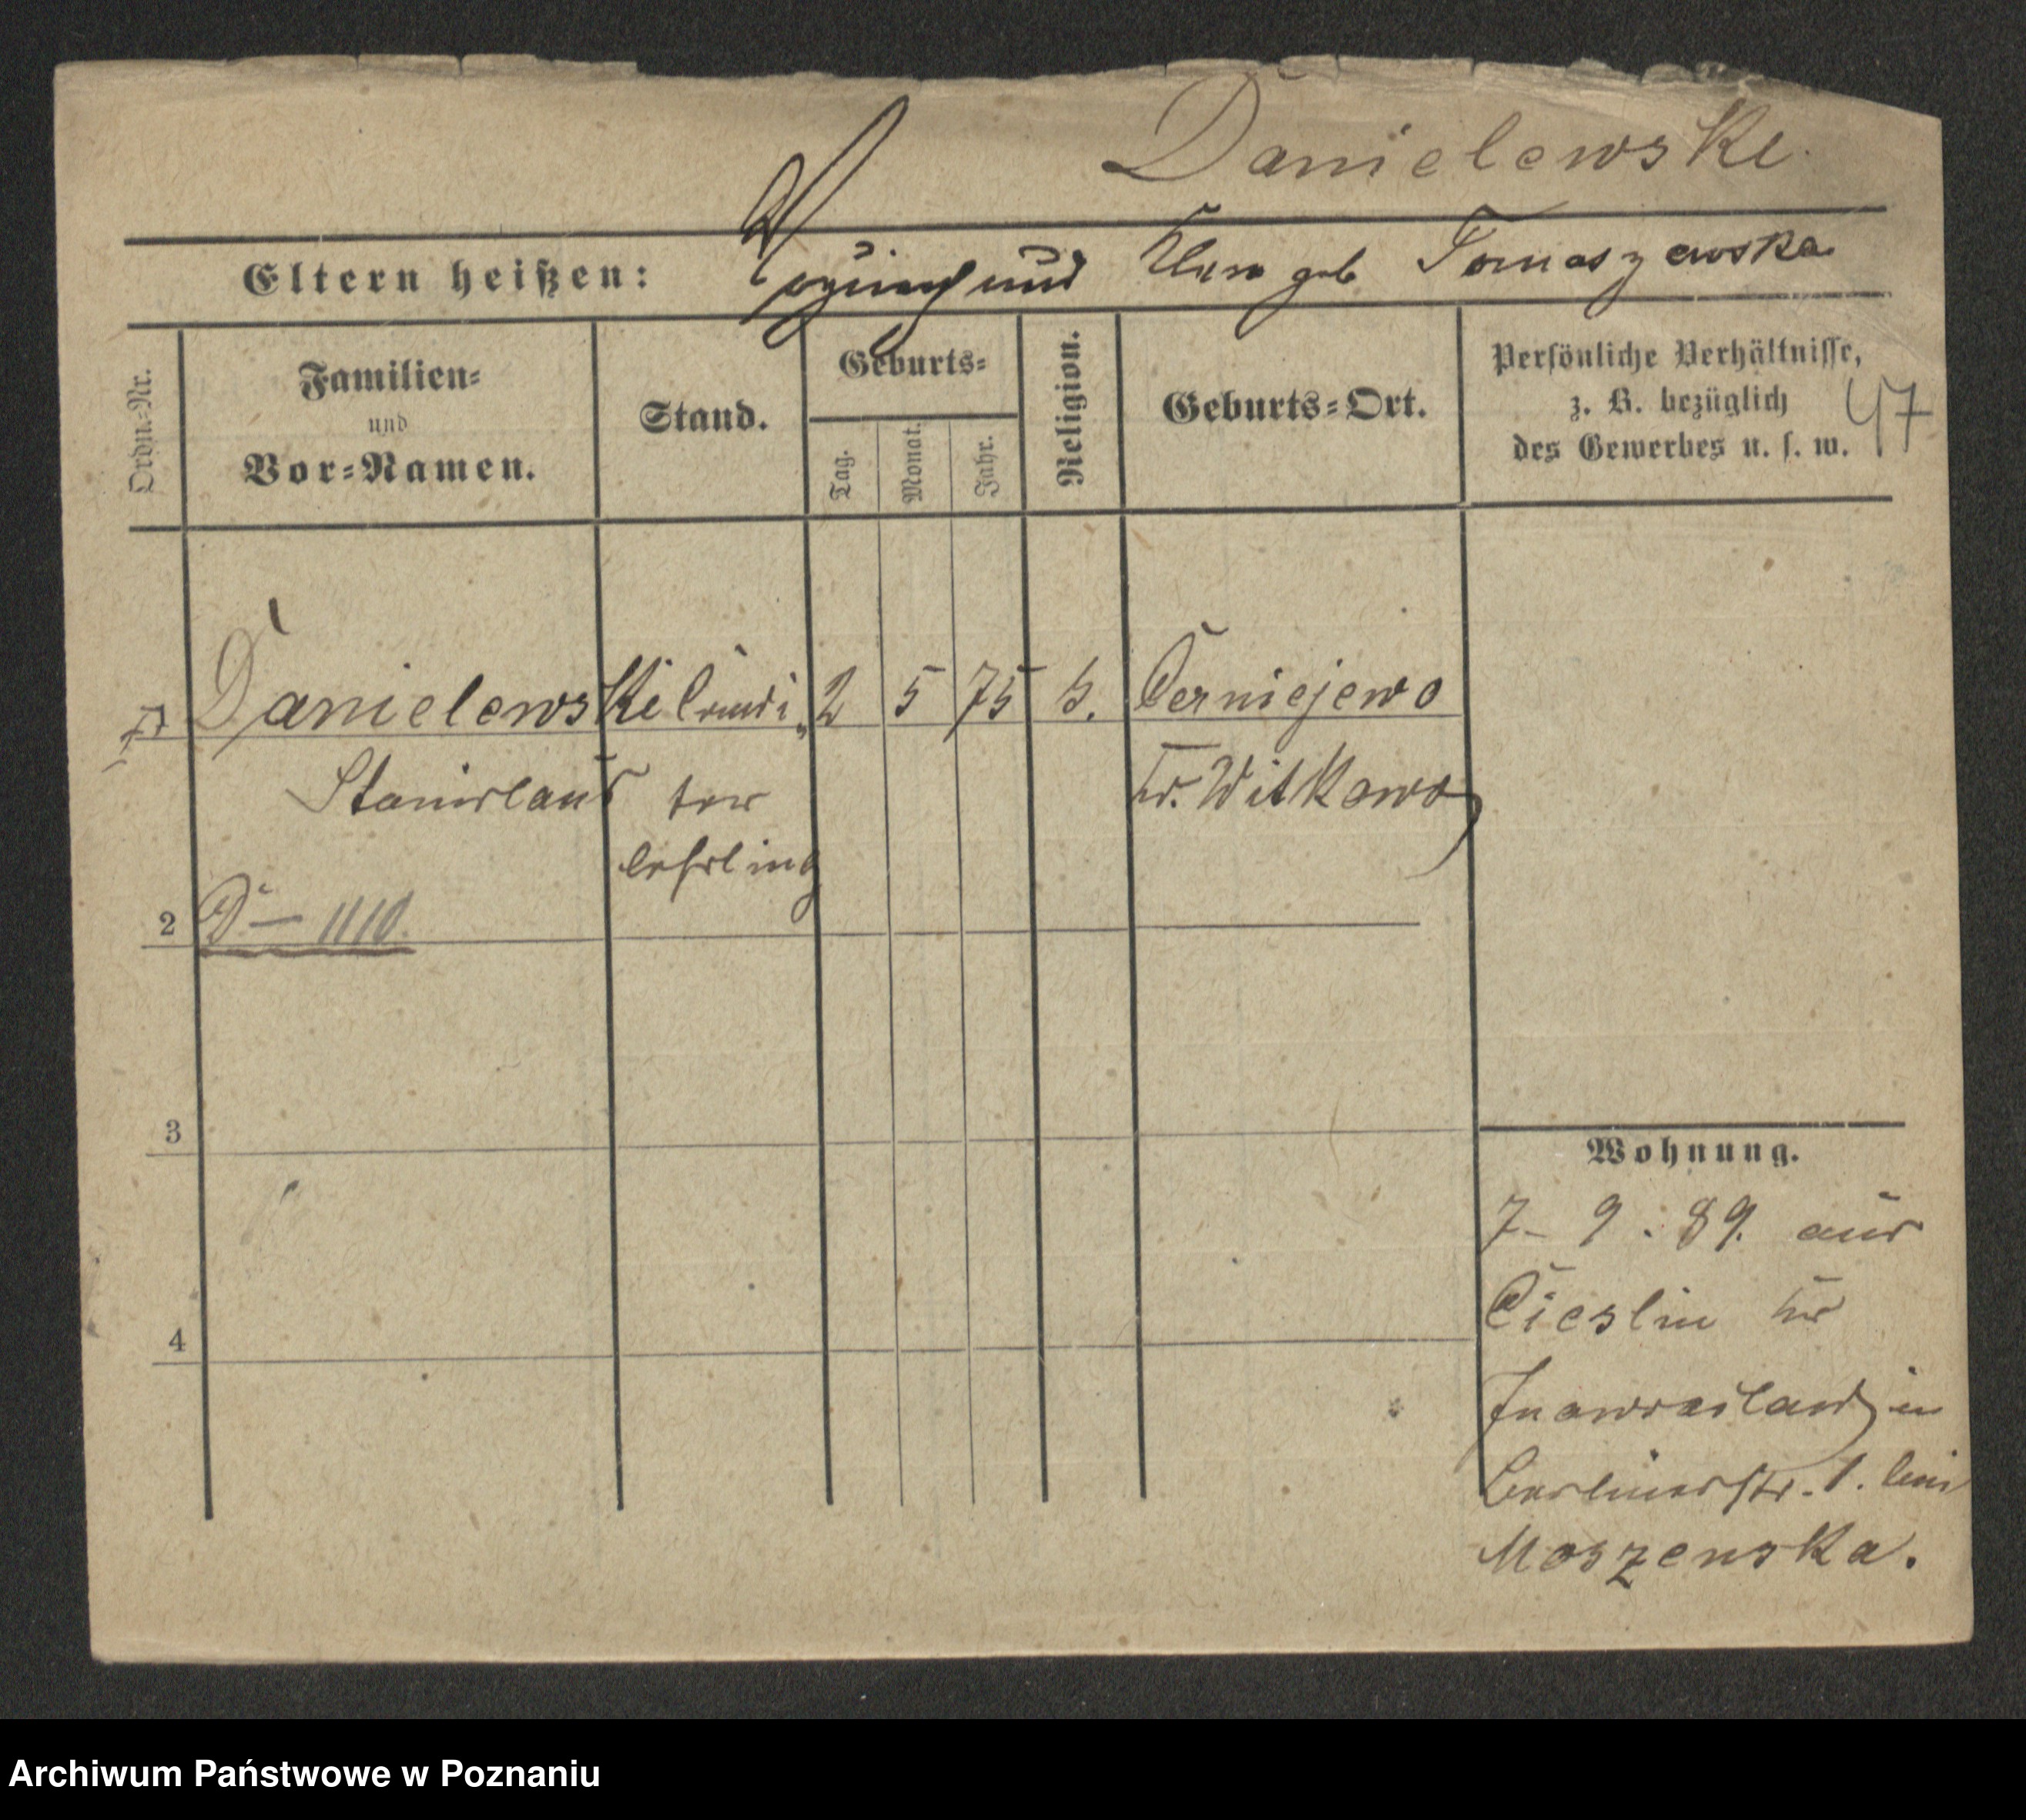 Danielewski
Eltern heißen: und geb Tomaszewska
Ordn.-Nr.
Familien-
und
Vor-Namen.
Stand.
Geburts-
Tag.
Monat.
Jahr.
Religion.
Geburts-Ort.
Persönliche Verhältnisse,
z. B. bezüglich
des Gewerbes u. s. w.
47
Danielewski Condi- 2 5 75 k. Czerniejewo
Stanislaus tor Kr. Witkowo
lehrling
2 D — 1110.
3
4
Wohnung.
7 - 9. 89. aus
Cieslin Kr
Inowrazlaw in
Berlinerstr. 1. bei
Moszenska.
Archiwum Państwowe w Poznaniu